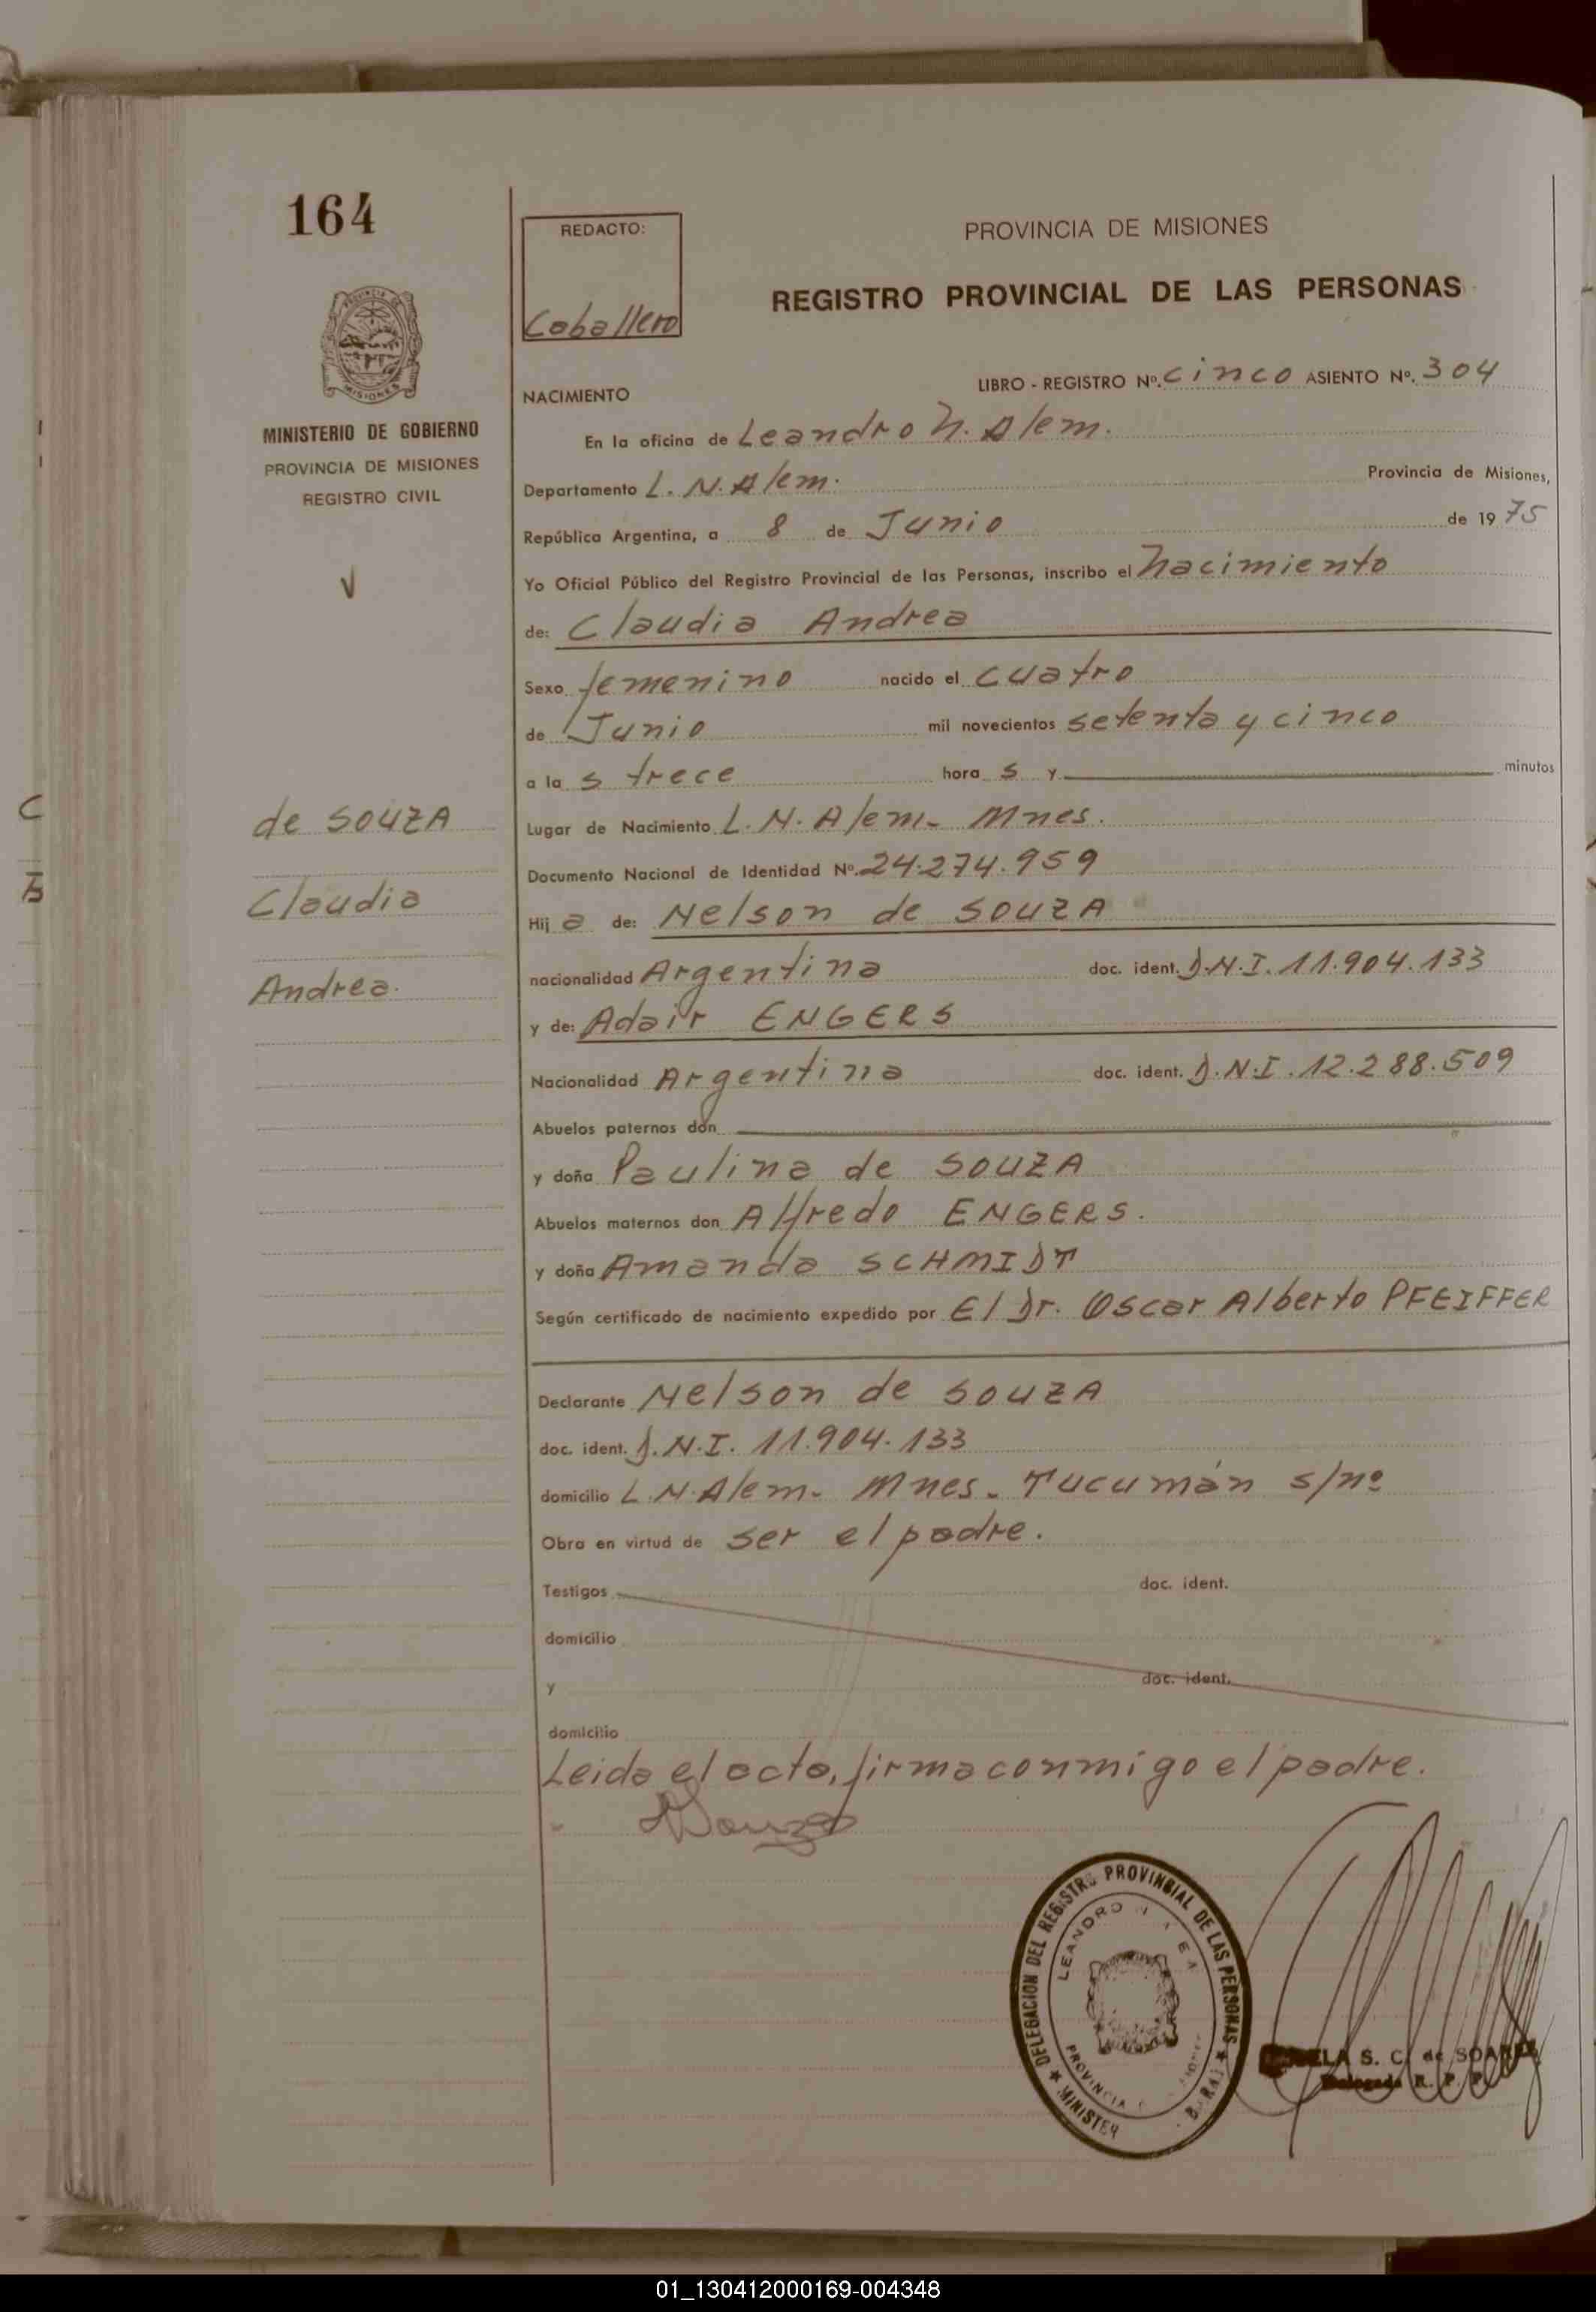 164
REDACTO:
Caballero
PROVINCIA DE MISIONES
REGISTRO PROVINCIAL DE LAS PERSONAS
MISIONES
MINISTERIO DE GOBIERNO
PROVINCIA DE MISIONES
REGISTRO CIVIL
NACIMIENTO
LIBRO - REGISTRO Nº. cinco ASIENTO Nº. 304
En la oficina de Leandro N. Alem.
Departamento L. N. Alem. Provincia de Misiones,
República Argentina, a 8 de Junio de 1975
Yo Oficial Público del Registro Provincial de las Personas, inscribo el Nacimiento
de: Claudia Andrea
Sexo femenino nacido el cuatro
de Junio mil novecientos setenta y cinco
a la s trece hora s y minutos
de SOUZA
Lugar de Nacimiento L. N. Alem - Mnes.
Documento Nacional de Identidad Nº. 24.274.959
Claudia
Hij a de: Nelson de SOUZA
Andrea.
nacionalidad Argentina doc. ident. D.N.I. 11.904.133
y de: Adair ENGERS
Nacionalidad Argentina doc. ident. D.N.I. 12.288.509
Abuelos paternos don
y doña Paulina de SOUZA
Abuelos maternos don Alfredo ENGERS.
y doña Amanda SCHMIDT
Según certificado de nacimiento expedido por El Dr. Oscar Alberto PFEIFFER
Declarante Nelson de SOUZA
doc. ident. D.N.I. 11.904.133
domicilio L.N.Alem - Mnes - Tucumán s/nº
Obra en virtud de ser el padre.
Testigos doc. ident.
domicilio
y doc. ident.
domicilio
Leida el acta, firma conmigo el padre.
DELEGACION DEL REGISTRO PROVINCIAL DE LAS PERSONAS
LEANDRO
PROVINCIA
S. C. de SOAREZ
Delegada R. P. P.
01_130412000169-004348